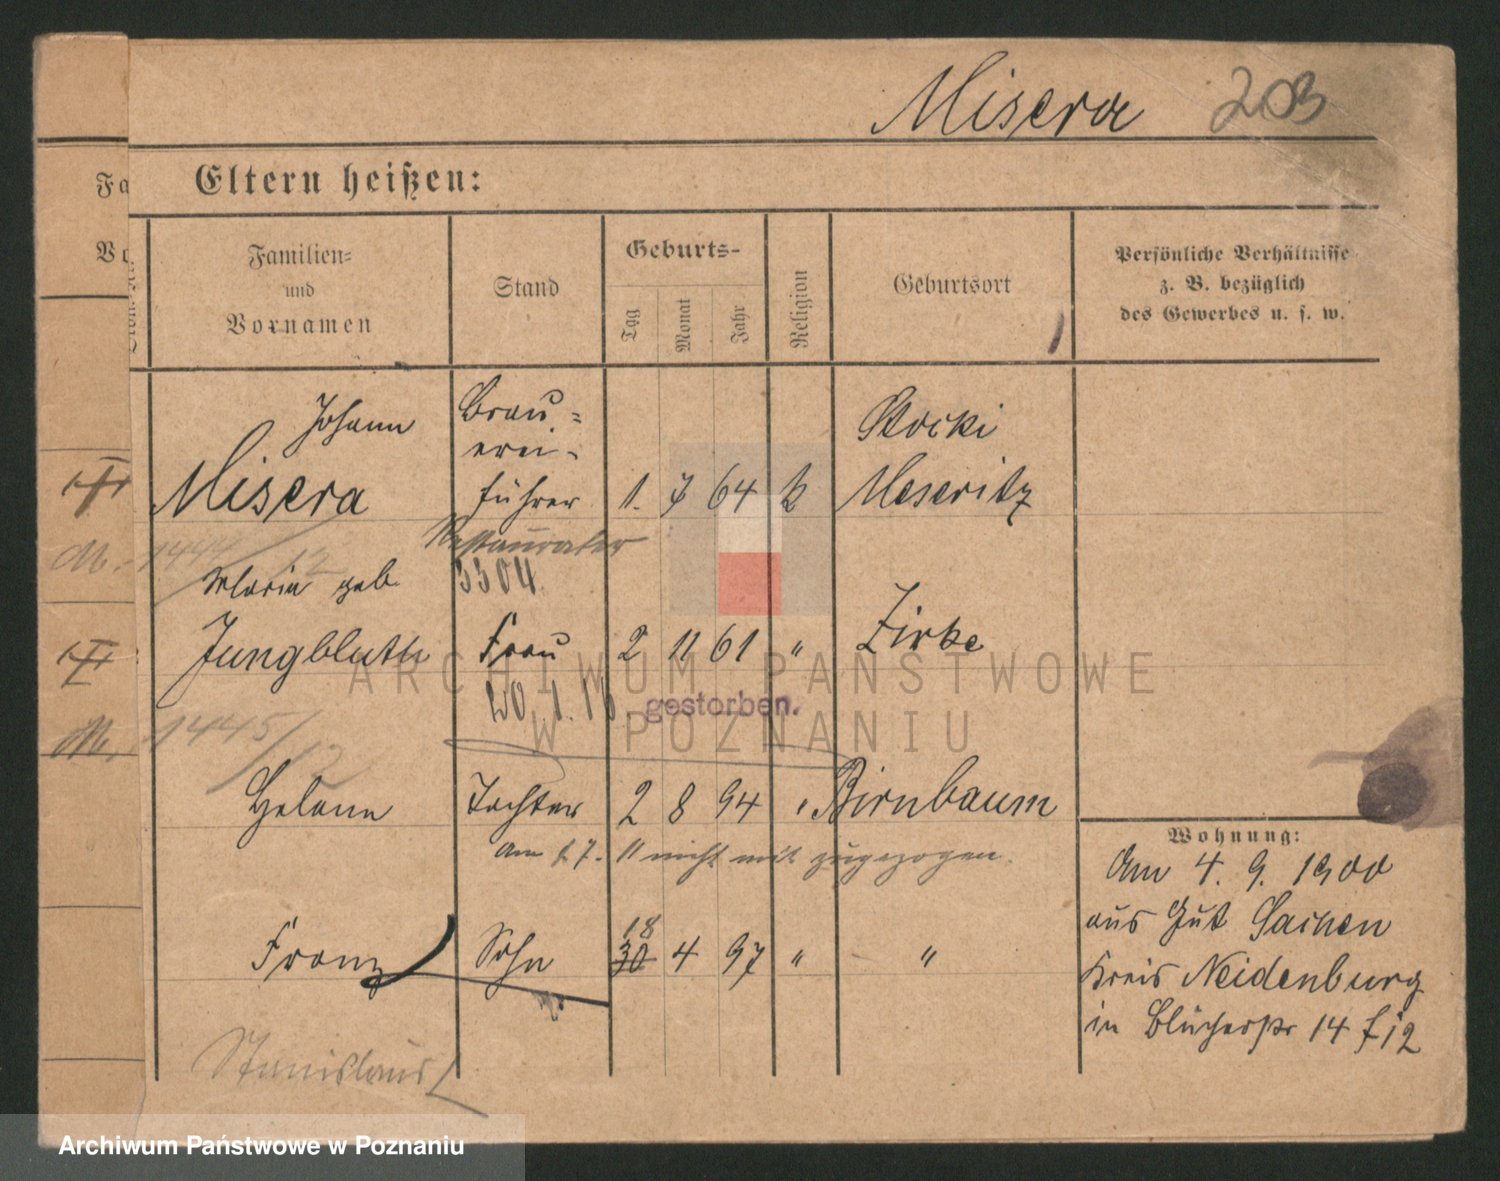 Misera 203
Eltern heißen:
Fa
Vo
Familien-
und
Vornamen
Stand
Geburts-
Tag
Monat
Jahr
Religion
Geburtsort
Persönliche Verhältnisse
z. B. bezüglich
des Gewerbes u. s. w.
Johann
Misera
Brau-
erei-
führer
1. 7 64 k
Stocki
Meseritz
Restaurateur
M. 1444/12
Maria geb.
Jungbluth
3304
Frau
2 11 61 "
Zirke
20.1.18. gestorben.
M. 1445/12
ARCHIWUM PAŃSTWOWE
W POZNANIU
Helene Tochter 2 8 94 " Birnbaum
Am 1.7.11 nicht mit zugezogen.
18
Franz Sohn 30 4 97 " "
Stanislaus
Wohnung:
Am 4. 9. 1900
aus Gut Sachen
Kreis Neidenburg
in Blücherstr 14 f 12
Archiwum Państwowe w Poznaniu